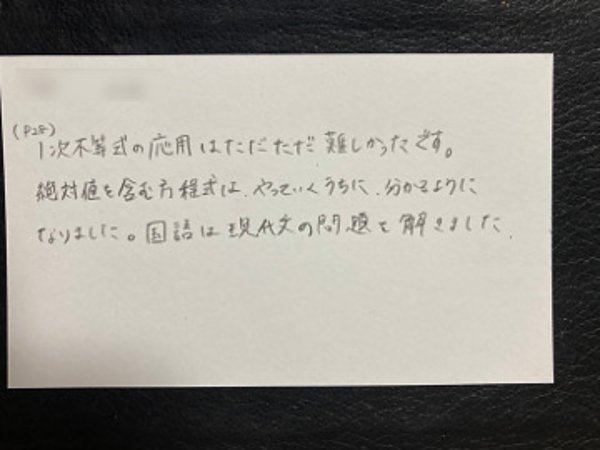 (P28)
1次不等式の応用はただただ難しかったです。
絶対値を含む方程式は、やっていくうちに、分かるように
なりました。国語は現代文の問題を解きました。